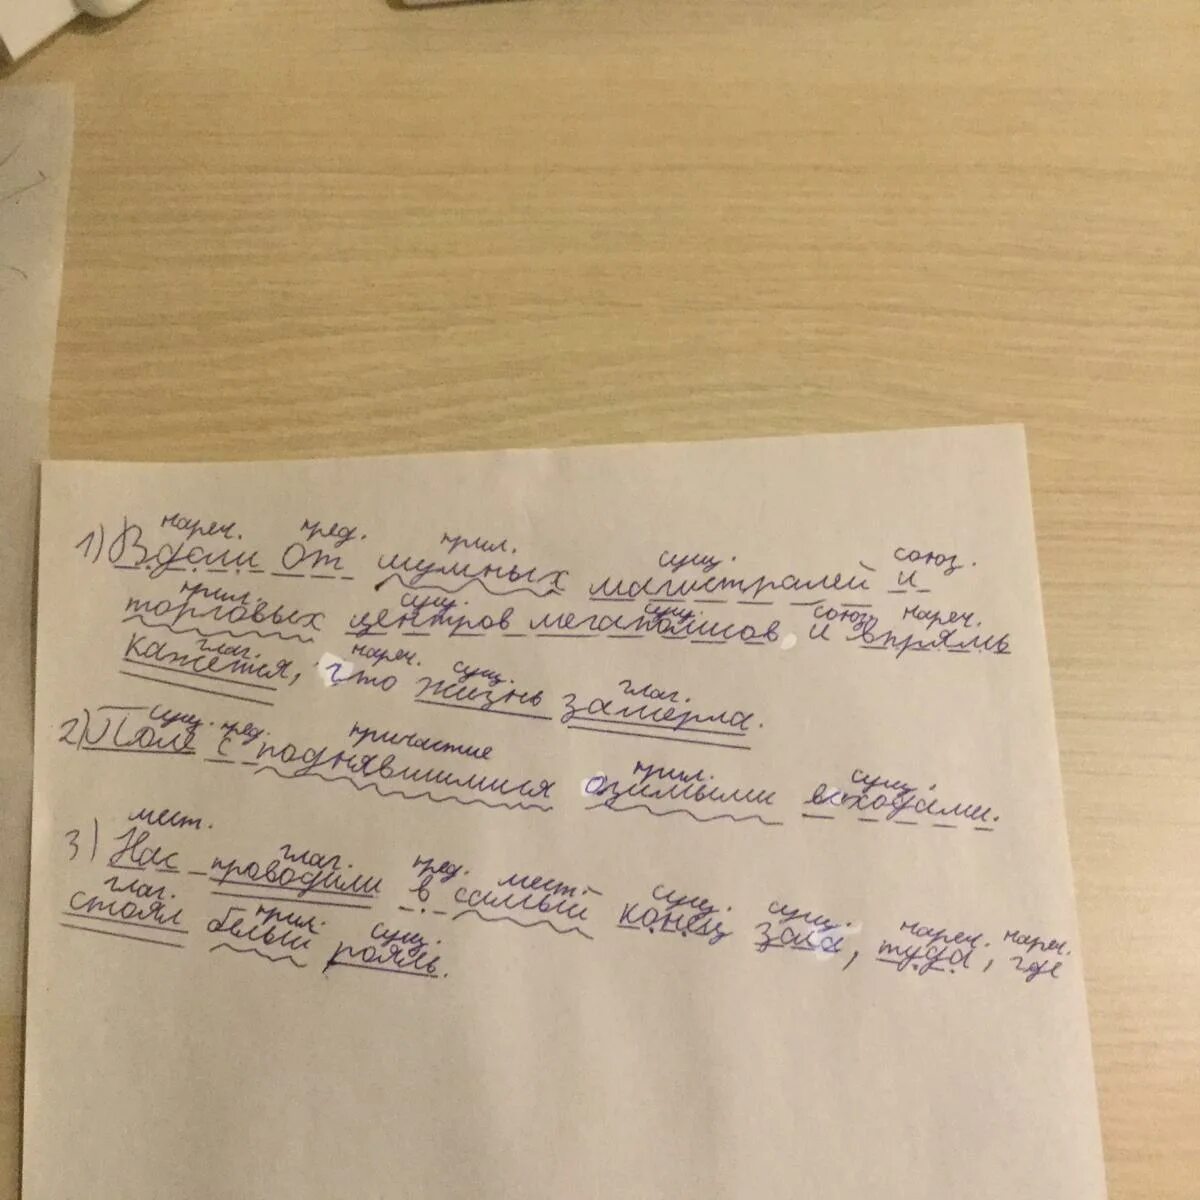 нареч. пред. прил. сущ. союз.
1) Вдали от шумных магистралей и
прил. сущ. сущ. союз нареч.
торговых центров мегаполисов и впрямь
глаг. нареч. сущ. глаг.
кажется, что жизнь замерла.
сущ. пред. причастие прил. сущ.
2) Поле с поднявшимися озимыми всходами.
мест. глаг. пред. мест. сущ. сущ. нареч. нареч.
3) Нас проводили в самый конец зала, туда, где
глаг. прил. сущ.
стоял белый рояль.